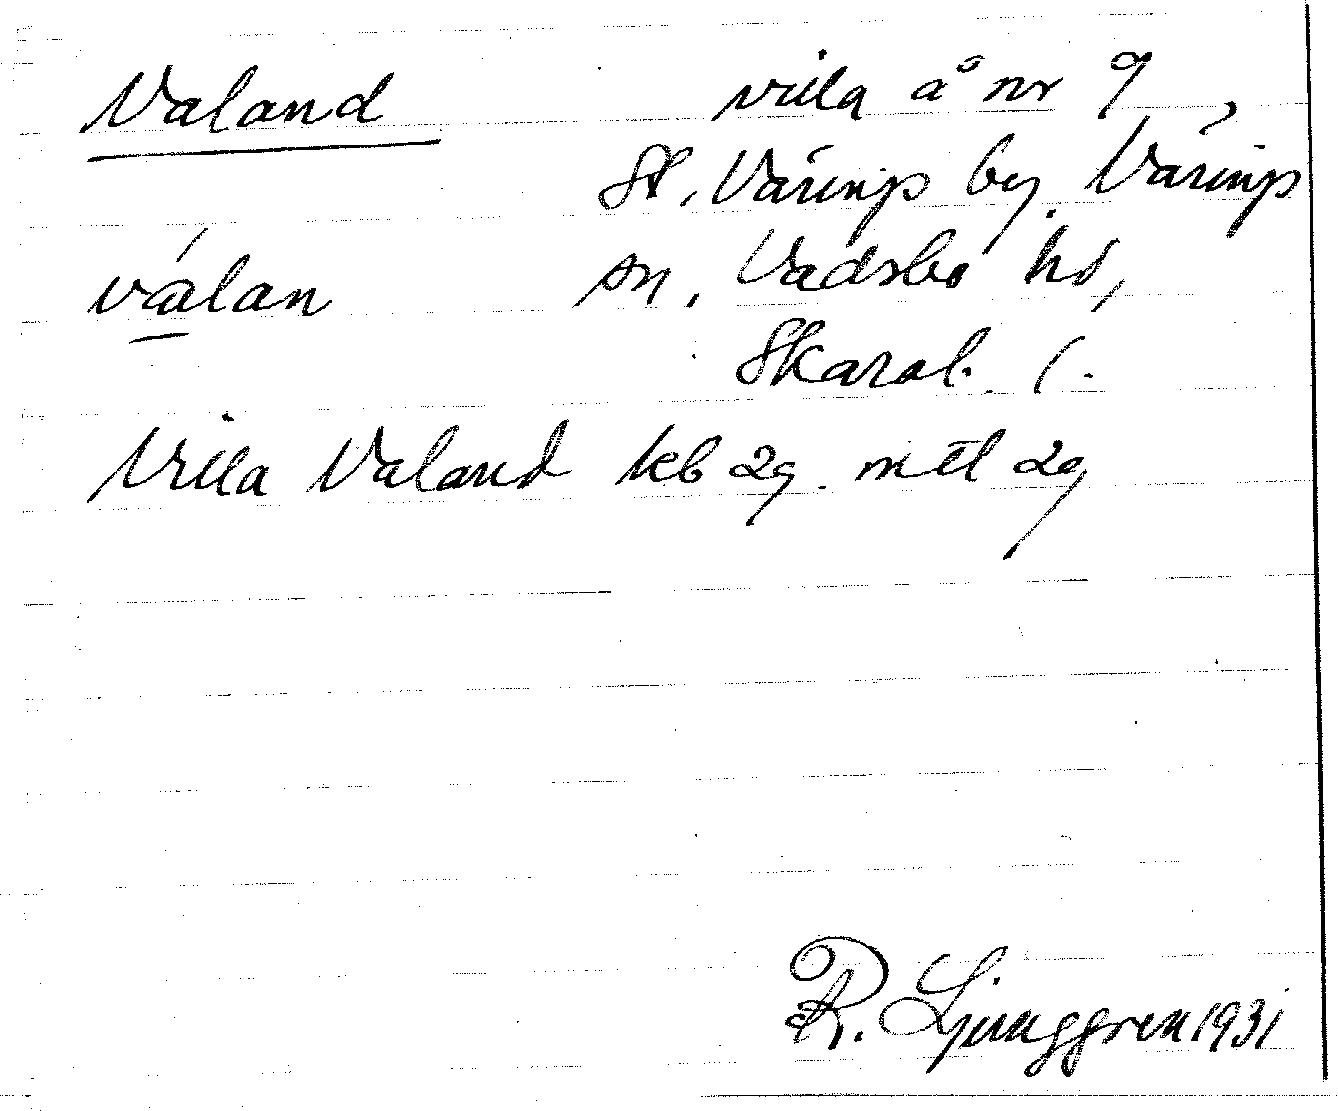 Valand villa å nr 9,
St. Väring by, Väring
válan sn, Vadsbo hd,
Skarab. l.
Villa Valand kb 29. mtl 29
R. Ljunggren 1931